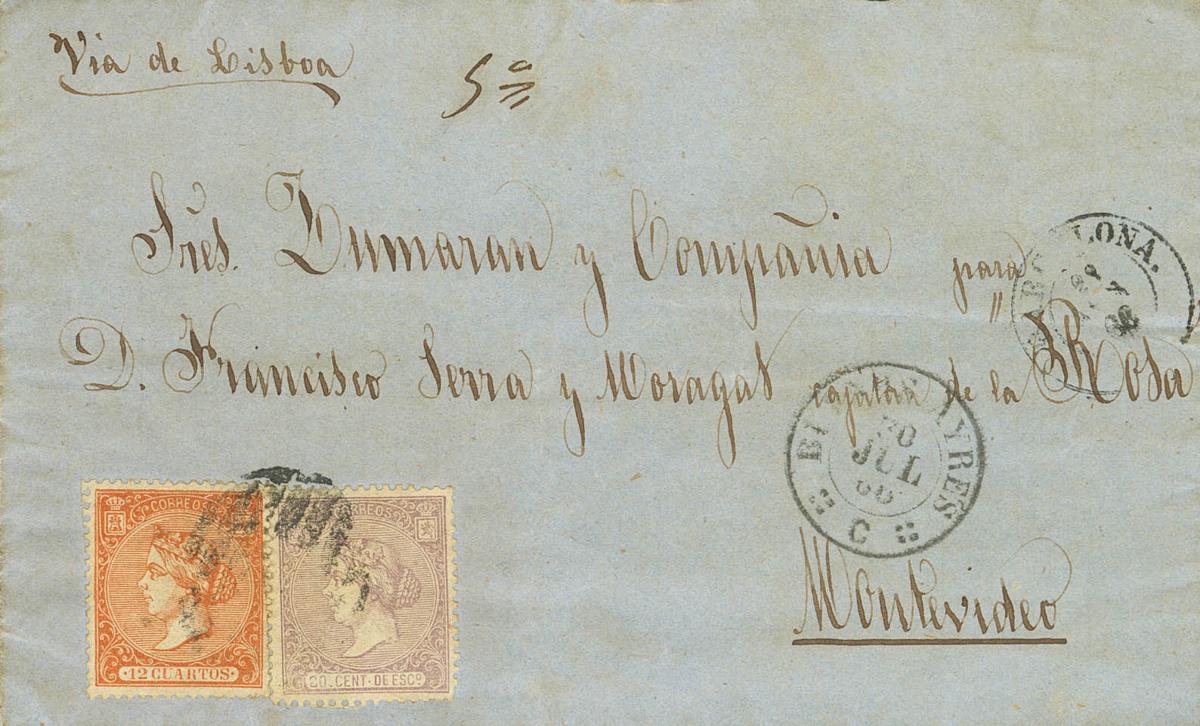 Via de Lisboa
5a
Sres. Dumaran y Compañia para
D. Francisco Serra y Moragas capitan de la Rosa
Montevideo
BARCELONA.
BUENOS AYRES
JUL
66
C
CORREOS
12 CUARTOS
CORREOS
20. CENT. DE ESCO